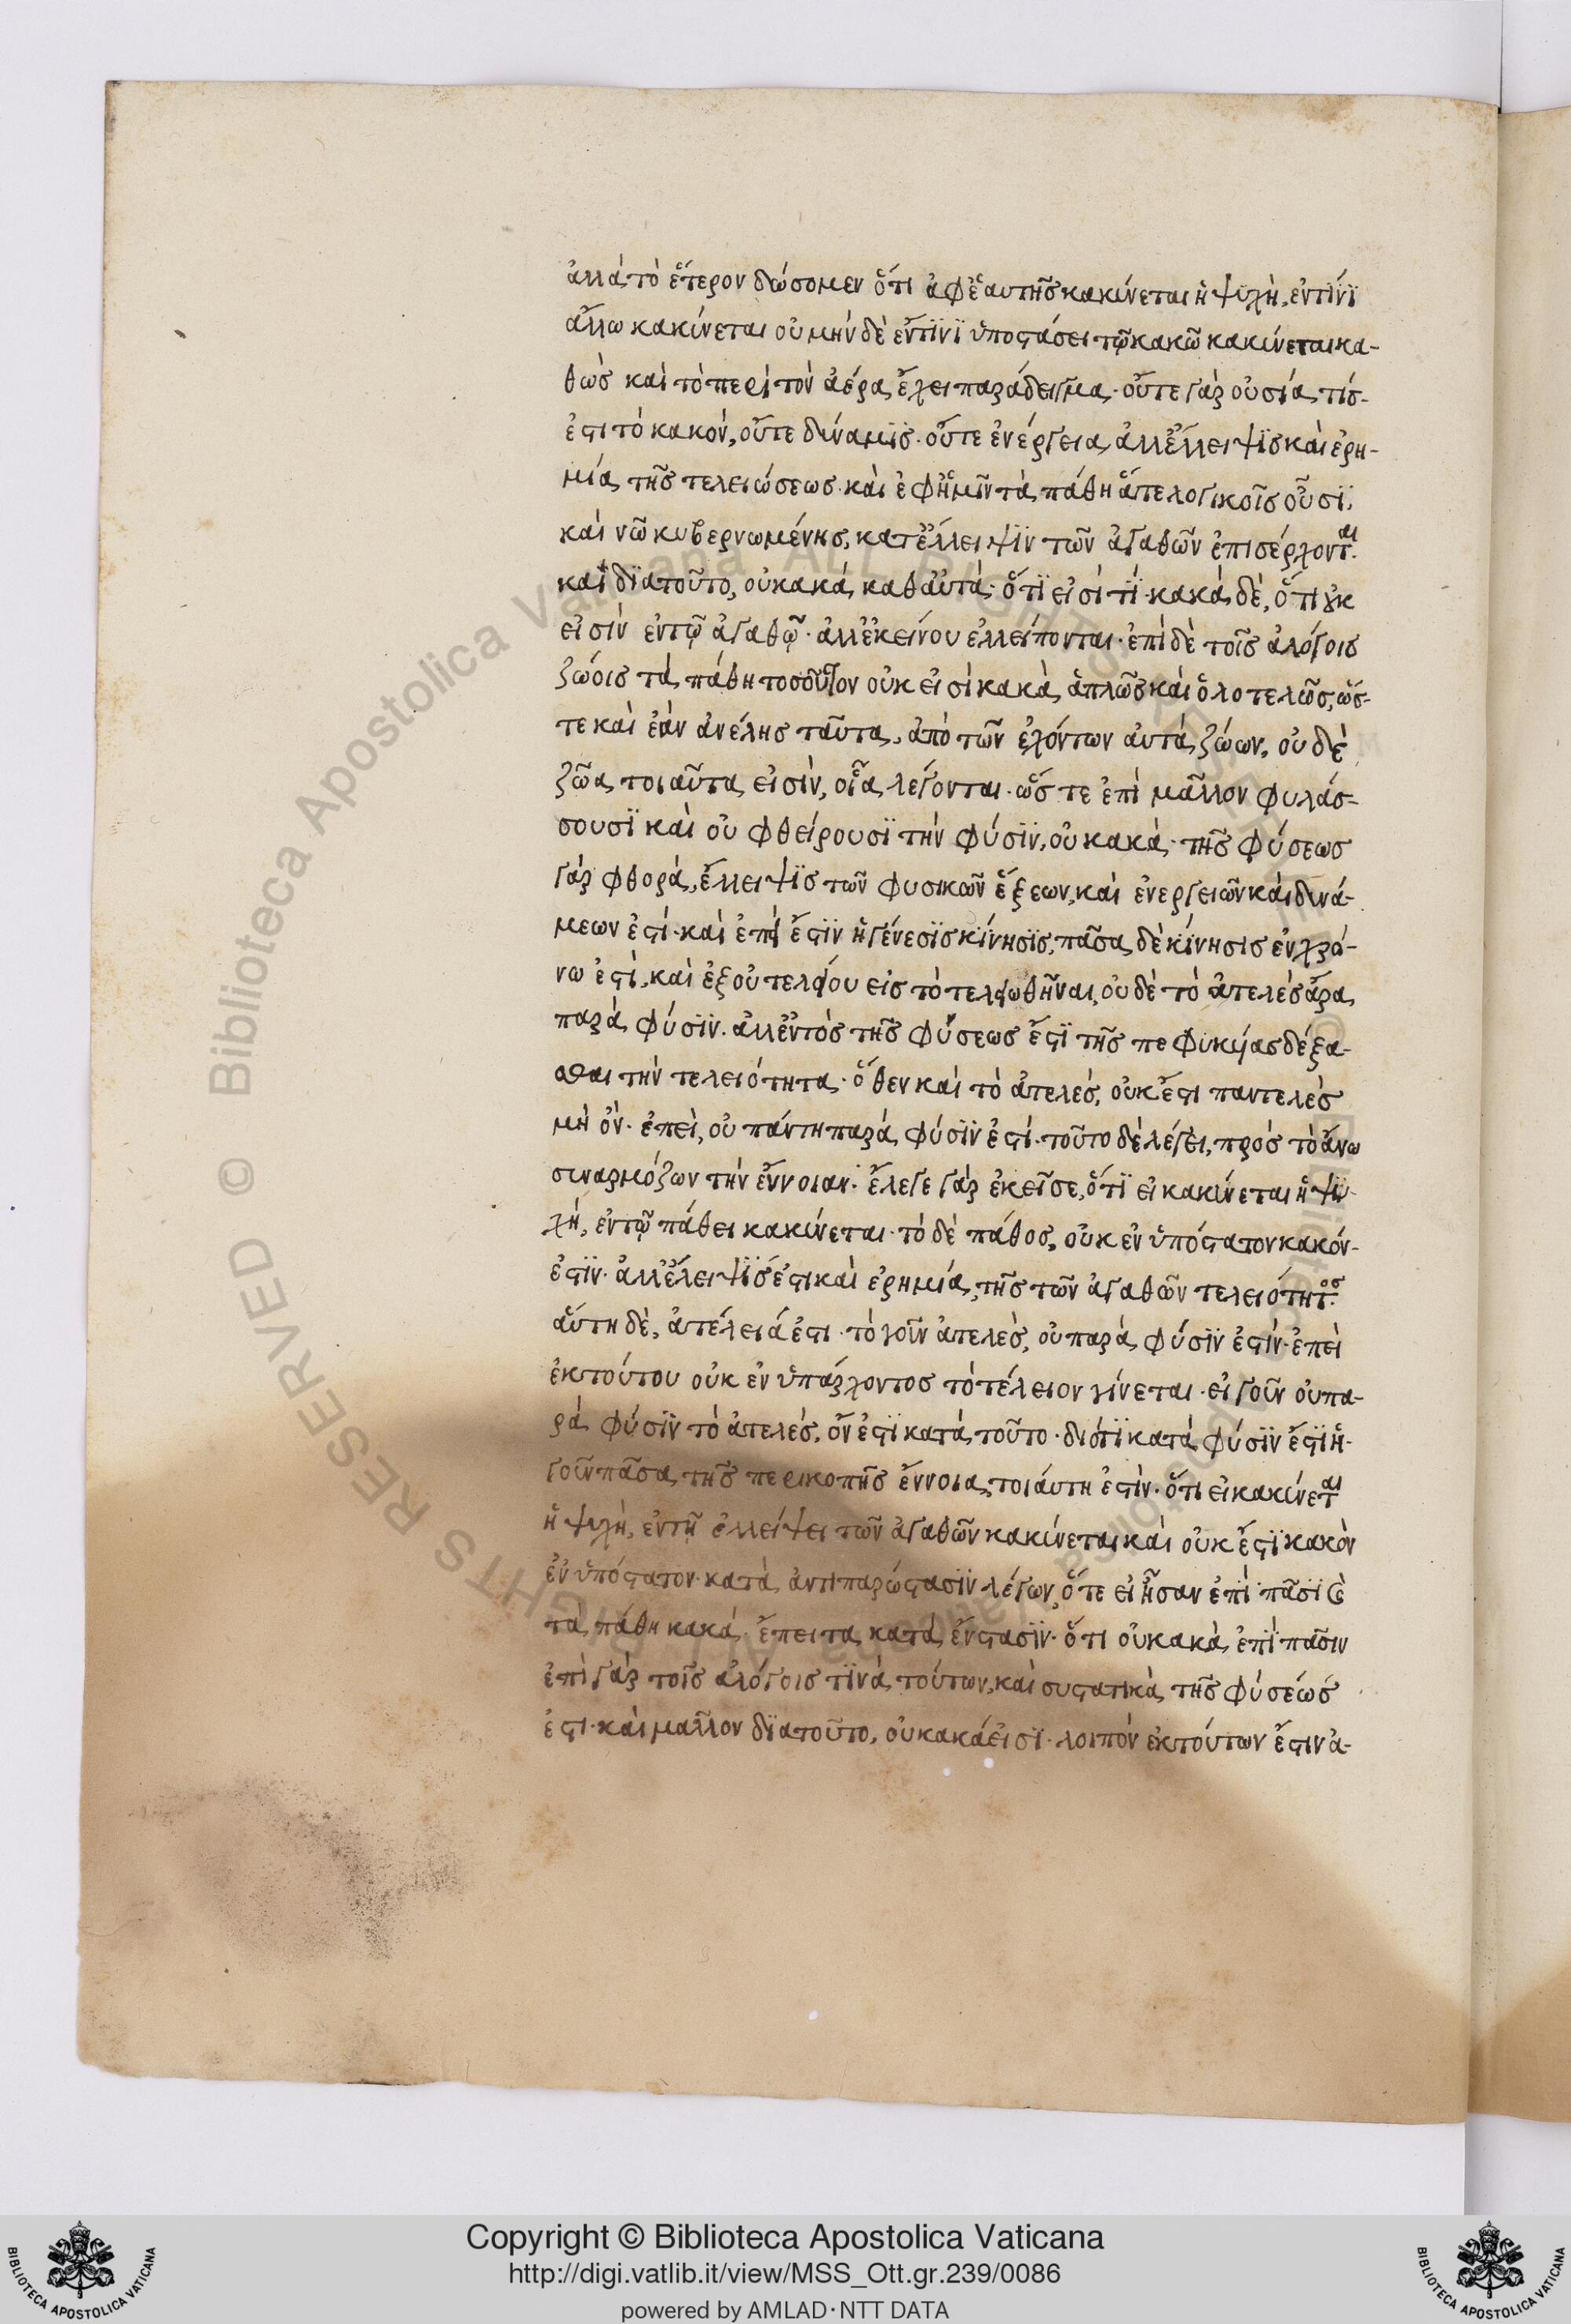 ἀλλὰ τὸ ἕτερον δώσομεν ὅτι ἀφ' ἑαυτῆς κακίνεται ἡ ψϋχὴ, ἐν τίνϊ
ἄλλω κακίνεται οὐ μὴν δὲ ἔν τϊνϊ ὑποστάσει τῷ κακῶ κακίνεται κα-
θὼς καὶ τὸ περὶ τὸν ἀέρα, ἔχει παράδειγμα· οὔτε γὰρ οὐσία, τίσ-
ἐστι τὸ κακὸν, οὔτε δύναμϊς· οὔτε ἐνέργεια, ἀλλ' ἔλλειψϊς καὶ ἐρη-
μία, τῆς τελειώσεως· καὶ ἐφ' ἡμῖν τὰ πάθη ἅτε λογικοῖς οὖσϊ,
καὶ νῶ κυβερνωμένης, κατ' ἔλλειψϊν τῶν ἀγαθῶν ἐπισέρχονται·
καὶ δϊατοῦτο, οὐ κακά, καθ' αὑτὰ· ὅτϊ εἰσί τϊ· κακὰ δὲ, ὅτι οὐκ
εἰσὶν ἐν τῷ ἀγαθῷ· ἀλλ' ἐκείνου ἐλλείπονται· ἐπὶ δὲ τοῖς ἀλόγοις
ζώοις τὰ πάθη τοσοῦτον οὐκ εἰσὶ κακὰ, ἁπλῶς καὶ ὁλοτελῶς, ὥσ-
τε καὶ ἐὰν ἀνέλης ταῦτα, ἀπὸ τῶν ἐχόντων αὐτὰ, ζώων, οὐδὲ
ζῶα, τοιαῦτα εἰσὶν, οἷα λέγονται· ὥστε ἐπὶ μᾶλλον φυλάσ-
σουσϊ καὶ οὐ φθείρουσϊ τὴν φύσϊν, οὐ κακὰ· τῆς φύσεως
γὰρ φθορὰ, ἔλλειψϊς τῶν φυσικῶν ἕξεων, καὶ ἐνεργειῶν καὶ δυνά-
μεων ἐστί· καὶ ἐπεὶ ἔστϊν ἡ γένεσϊς κίνησϊς, πᾶσα, δὲ κίνησις ἐν χρό-
νω ἐστὶ, καὶ ἐξ οὐ τελείου εἰς τὸ τελειωθῆναι, οὐδὲ τὸ ἀτελὲς ἄρα,
παρὰ φύσϊν· ἀλλ' ἐντὸς τῆς φύσεως ἔστϊ τῆς πεφυκυίας δέξα-
σθαι τὴν τελειότητα· ὅθεν καὶ τὸ ἀτελές, οὐκ ἔστι παντελὲς
μὴ ὄν· ἐπεὶ, οὐ πάντη παρὰ, φύσϊν ἐστί· τοῦτο δὲ λέγει, πρὸς τὸ ἄνω
συναρμόζων τὴν ἔννοιαν· ἔλεγε γὰρ ἐκεῖσε, ὅτϊ εἰ κακίνεται ἡ ψϋ-
χὴ, ἐν τῷ πάθει κακίνεται· τὸ δὲ πάθος, οὐκ ἐνϋπόστατον κακόν-
ἐστϊν· ἀλλ' ἔλειψϊς ἐστι καὶ ἐρημία, τῆς τῶν ἀγαθῶν τελειότητος·
αὕτη δὲ, ἀτέλειά ἐστι· τὸ γοῦν ἀτελὲς, οὐ παρὰ, φύσϊν ἐστίν· ἐπεὶ
ἐκ τούτου οὐκ ἐνϋπάρχοντος τὸ τέλειον γίνεται· εἰ γοῦν οὐ πα-
ρὰ φύσϊν τὸ ἀτελές, ὄν ἐστϊ κατὰ, τοῦτο· διότϊ κατὰ φύσϊν ἔστϊ ἡ-
γοῦν πᾶσα, τῆς περικοπῆς ἔννοια, τοιάυτη ἐστὶν· ὅτι εἰ κακίνεται
ἡ ψυχὴ, ἐν τῇ ἐλλείψει τῶν ἀγαθῶν κακίνεται καὶ οὐκ ἔστϊ κακὸν
ἐνϋπόστατον· κατὰ, ἀντιπαρώστασϊν λέγων, ὅτε εἰ ἦσαν ἐπὶ πᾶσϊ
τὰ, πάθη κακά· ἔπειτα, κατὰ, ἔνστασϊν· ὅτι οὐ κακὰ, ἐπϊ πᾶσιν
ἐπὶ γὰρ τοῖς ἀλόγοις τϊνὰ, τούτων, καὶ συστατικὰ, τῆς φύσεώς
ἐστι· καὶ μᾶλλον δϊατοῦτο, οὐ κακά εἰσϊ· λοιπὸν ἐκ τούτων ἔστιν ἀ-
Copyright © Biblioteca Apostolica Vaticana
http://digi.vatlib.it/view/MSS_Ott.gr.239/0086
powered by AMLAD·NTT DATA